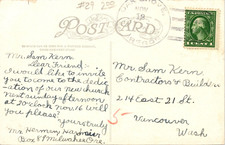 #24 2.00
POST CARD
NOV
19
Mr. Sam Kern
Dear Friend:-
I would like to invite
you to come to the dedic
ation of our new church
next Sunday afternoon
at 2 o'clock Nov 16 will
you please?
Yours truly
Mr. Herminy
Box 87 Milwaukee Ore.
Mr. Sam Kern
Contractors & Builder
214 East 21 St.
5- Vancouver
Wash